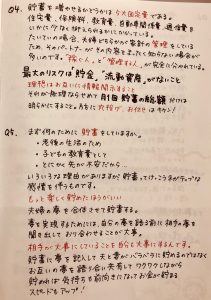 Q4. 貯蓄を増やせるかどうかは今の固定費である。
住宅費、保険料、教育費、自動車関係費、通信費を
いかに少なく抑えられるかにかかっている。
たいていの場合、夫婦どちらかが家計の管理をしている
ため、そのパートナーがその内容をまったく知らない場合が
多いです。"稼ぐ人"と"管理する人"が完全に分かれている。
最大のリスクは貯金、流動資産がないこと
理想はお互いに情報開示すること
それが無理ならせめて月1回貯蓄の総額だけは
明らかにすること。月もに丸投げ、お任せはキケン!
Q5. まず何のために貯蓄をしていますか。
・老後の生活のため
・子どもの教育費として
・とにかく先が不安だから
いろいろな理由がありますが貯蓄ってけっこうネガティブな
感情を伴うものです。
もっと楽しく貯めたほうがいい
夫婦の夢を合体させて貯蓄する。
夢を実現するためには、自分の夢を語る前に相手の夢を
聞き出してカタチ合わせることが大事。
相手が大事にしていることを自分も大事にするんです。
貯蓄に夢を託して夫と妻がバラバラに貯めるのではなく
お互いの夢を語り合い共有してワクワクしながら
貯めれば気持ちも前向きになれてお金が貯まる
スピードもアップ!